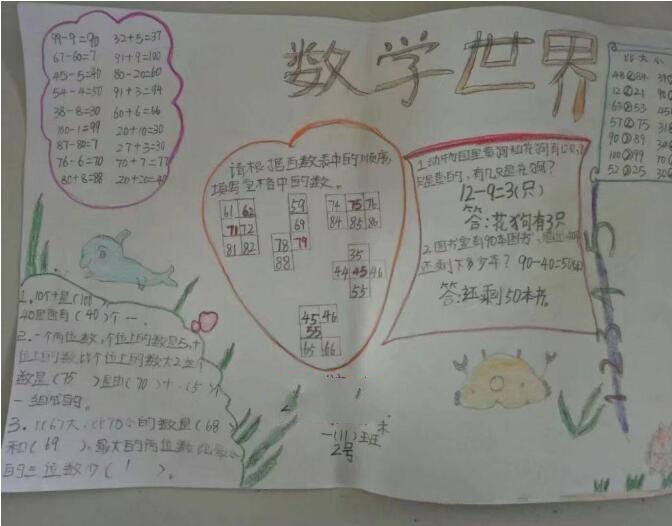 数学世界
99-9=90 32+5=37
67-60=7 91+9=100
45-5=40 80-20=60
54-4=50 91+3=94
38-8=30 60+6=66
100-1=99 20+10=30
87-80=7 27+3=30
76-6=70 70+7=77
80+8=88 20+20=40
请根据百数表中的顺序,
填写空格中的数。
61 62
71 72
81 82
59
69
78 79
88
74 75 76
84 85 86
35
44 45 46
55
45 46
55
65 66
1.动物园里黄狗和花狗有12只,
是黄的,有几只是花狗?
12-9=3(只)
答:花狗有3只
2.图书室有90本图书,
还剩下多少本? 90-40=50
答:还剩50本书。
比大小
48 84
12 21
63 53
57 75
90 89
100 99
52 25
1.10个十是(100)
40里面有(40)个一
2.一个两位数,个位上的数是5,十
位上的数比个位上的数大2,这个
数是(75)是由(70)+(5)个
一组成的。
3.比67大,比70小的数是(68)
和(69),最大的两位数比最小
的三位数少(1)。
一(11)班
2号
1 2 3 4 5